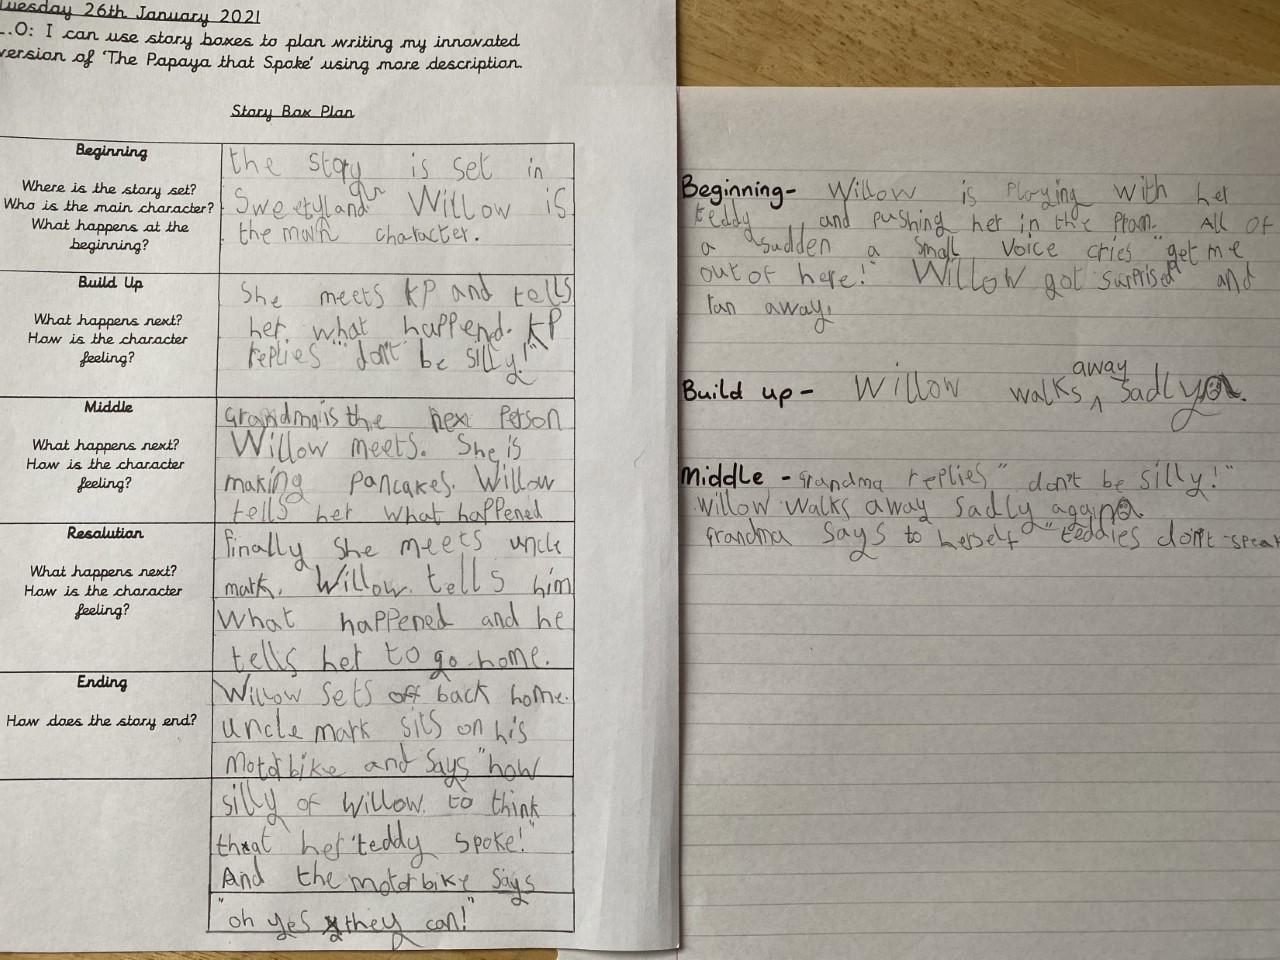 Tuesday 26th January 2021
L.O: I can use story boxes to plan writing my innovated
version of 'The Papaya that Spoke' using more description.
Story Box Plan
Beginning
Where is the story set?
Who is the main character?
What happens at the
beginning?
the story is set in
Sweetyland Willow is
the main character.
Build Up
What happens next?
How is the character
feeling?
She meets KP and tells
her what happened. KP
replies "don't be silly!"
Middle
What happens next?
How is the character
feeling?
Grandma is the next Person
Willow meets. She is
making pancakes. Willow
tells her what happened
Resolution
What happens next?
How is the character
feeling?
finally she meets uncle
mark. Willow. tells him
what happened and he
tells her to go home.
Ending
How does the story end?
Willow sets off back home.
uncle mark sits on his
motorbike and says "how
silly of Willow. to think
that her teddy spoke!"
And the motorbike says
"oh yes they can!"
Beginning- Willow is Playing with her
teddy and pushing her in the Pram. All of
a sudden a small voice cries "get me
out of here!" Willow got surprised and
ran away.
Build up- Willow walks away sadly.
Middle - grandma replies "don't be silly!"
Willow walks away sadly again
grandma says to herself "teddies don't speak